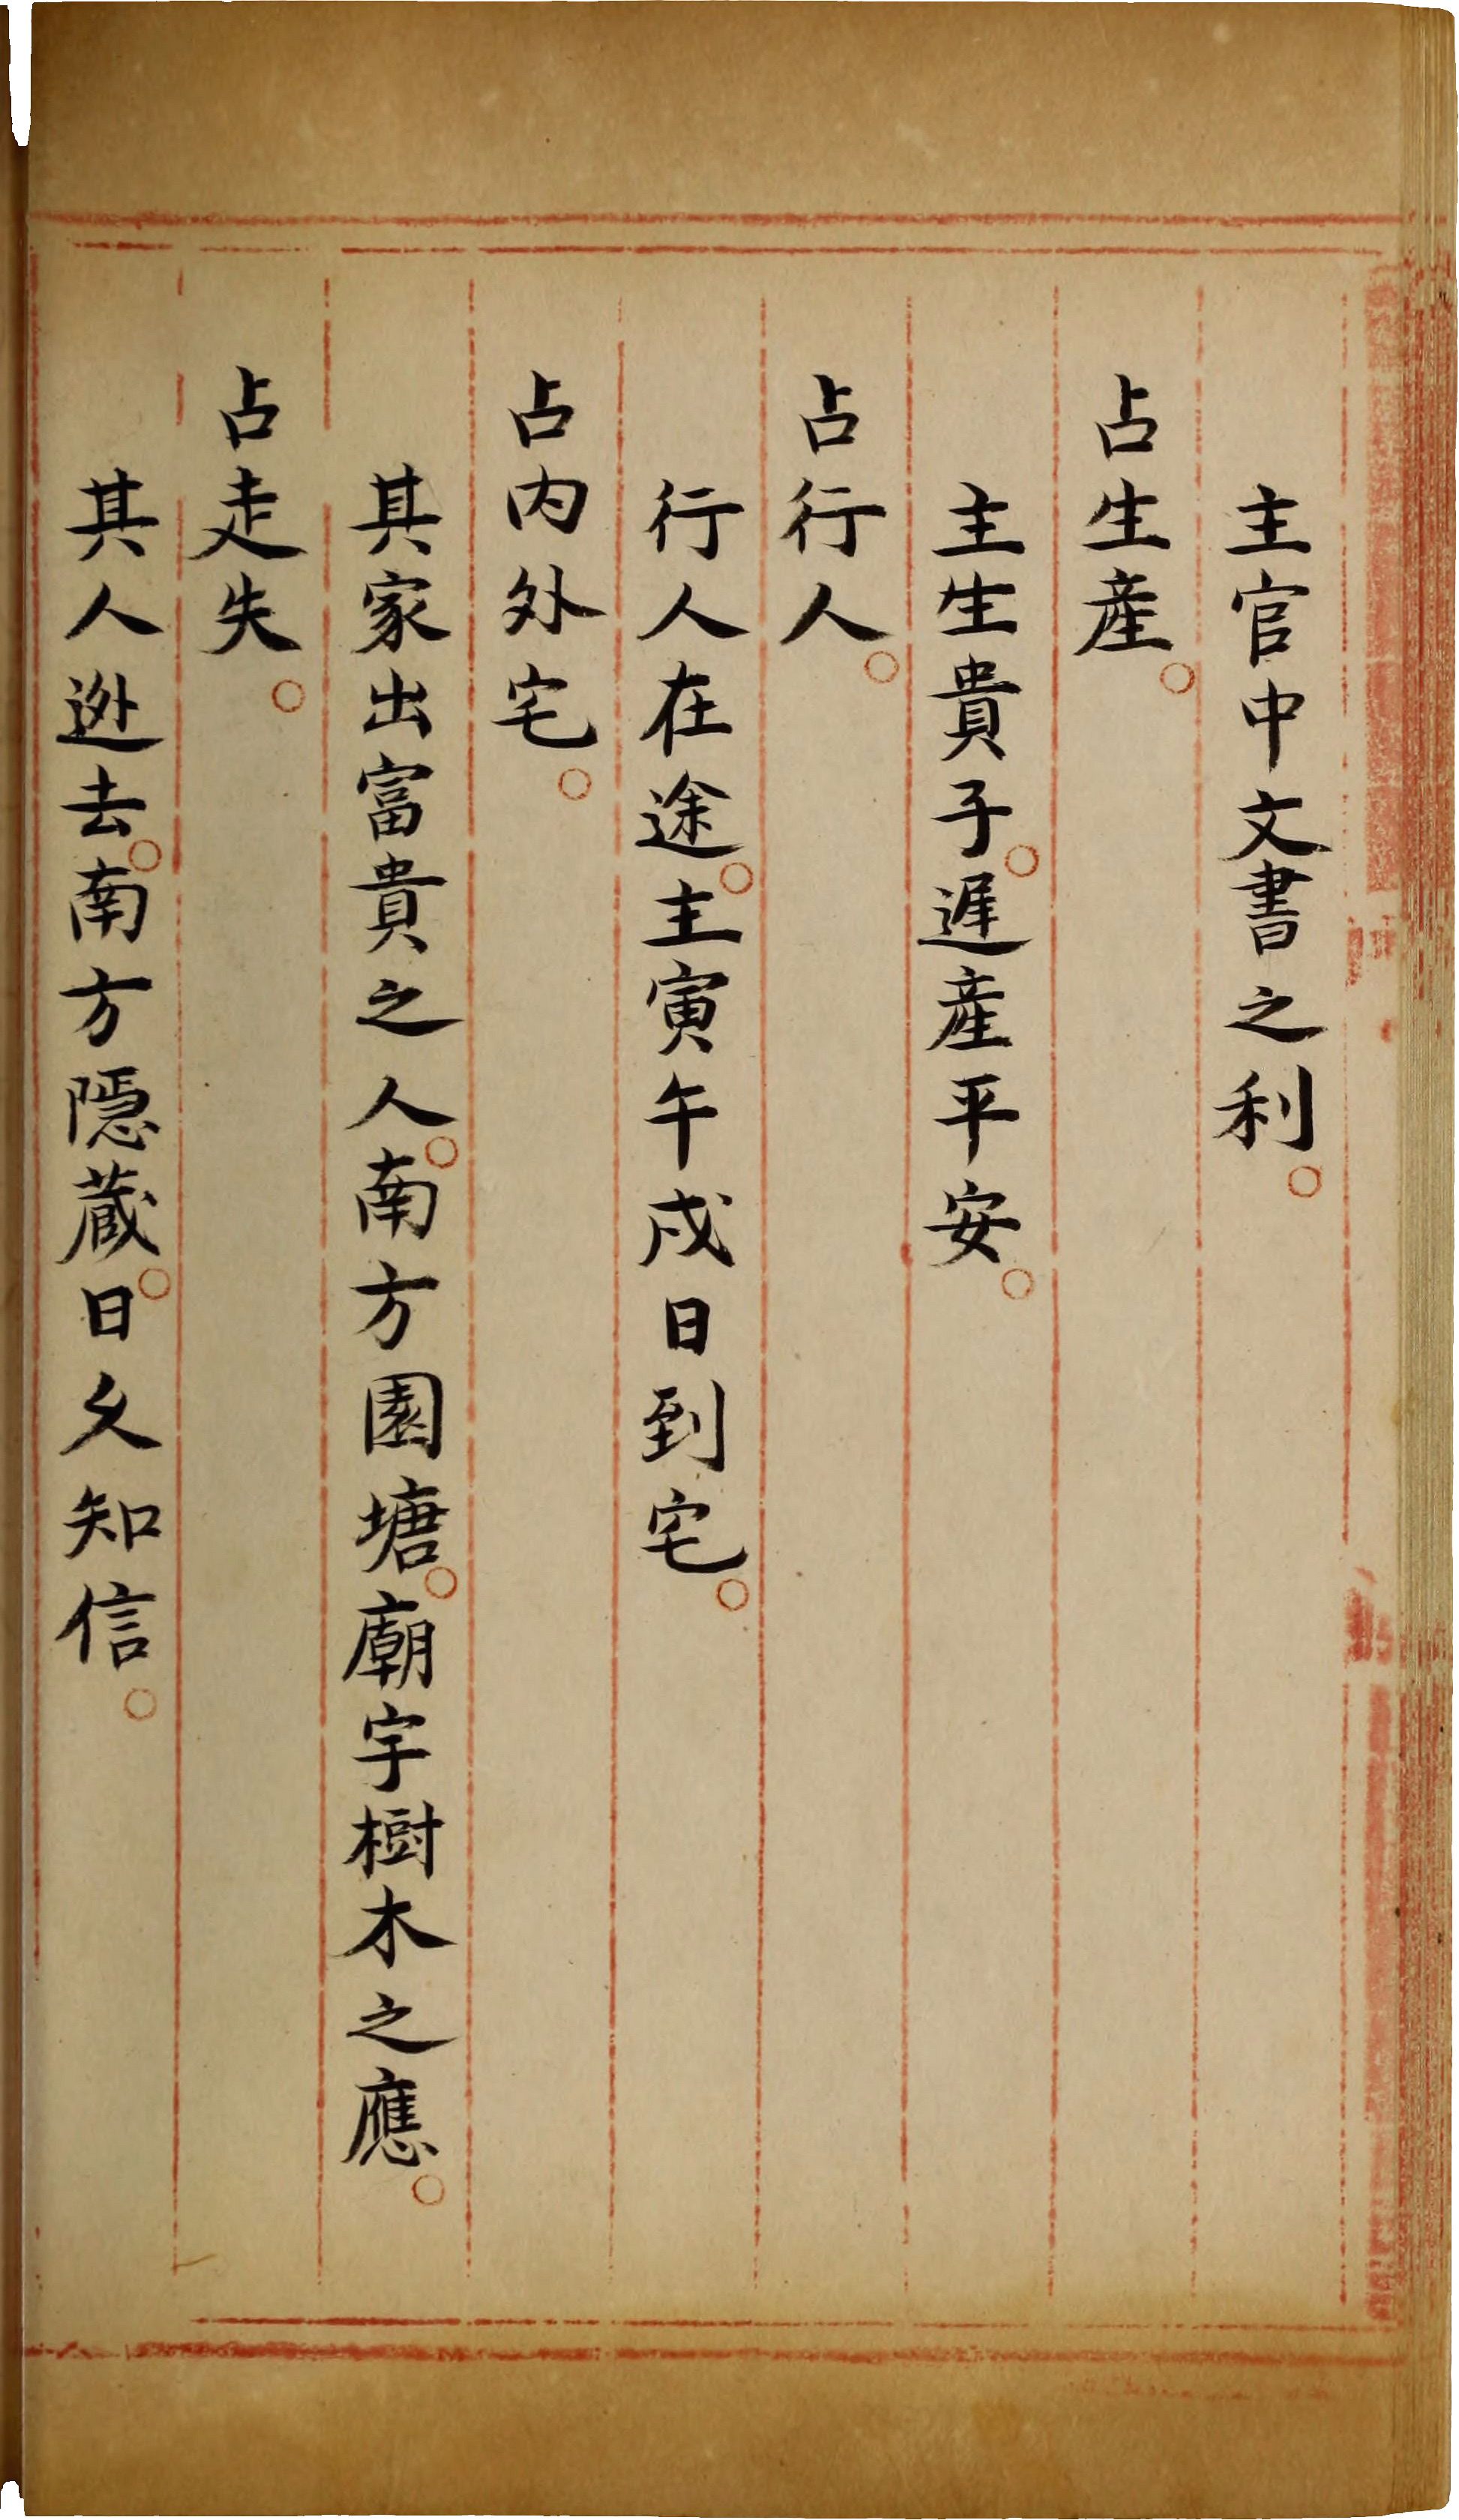 主官中文書之利。
占生産。
主生貴子。遲産平安。
占行人。
行人在途。主寅午戍日到宅。
占内外宅。
其家出富貴之人。南方園塘。廟宇樹木之應。
占走失。
其人逃去。南方隱蔵。日久知信。